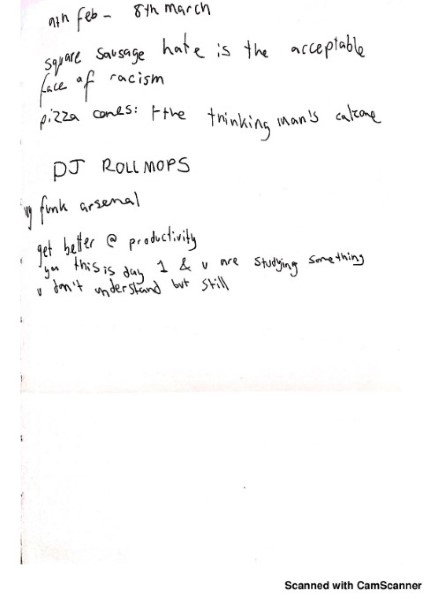 feb - 8th march
square sausage hate is the acceptable
face of racism
pizza cones: the thinking man's calzone
DJ ROLLMOPS
funk arsenal
get better @ productivity
this is day 1 & u are studying something
u don't understand but still
Scanned with CamScanner